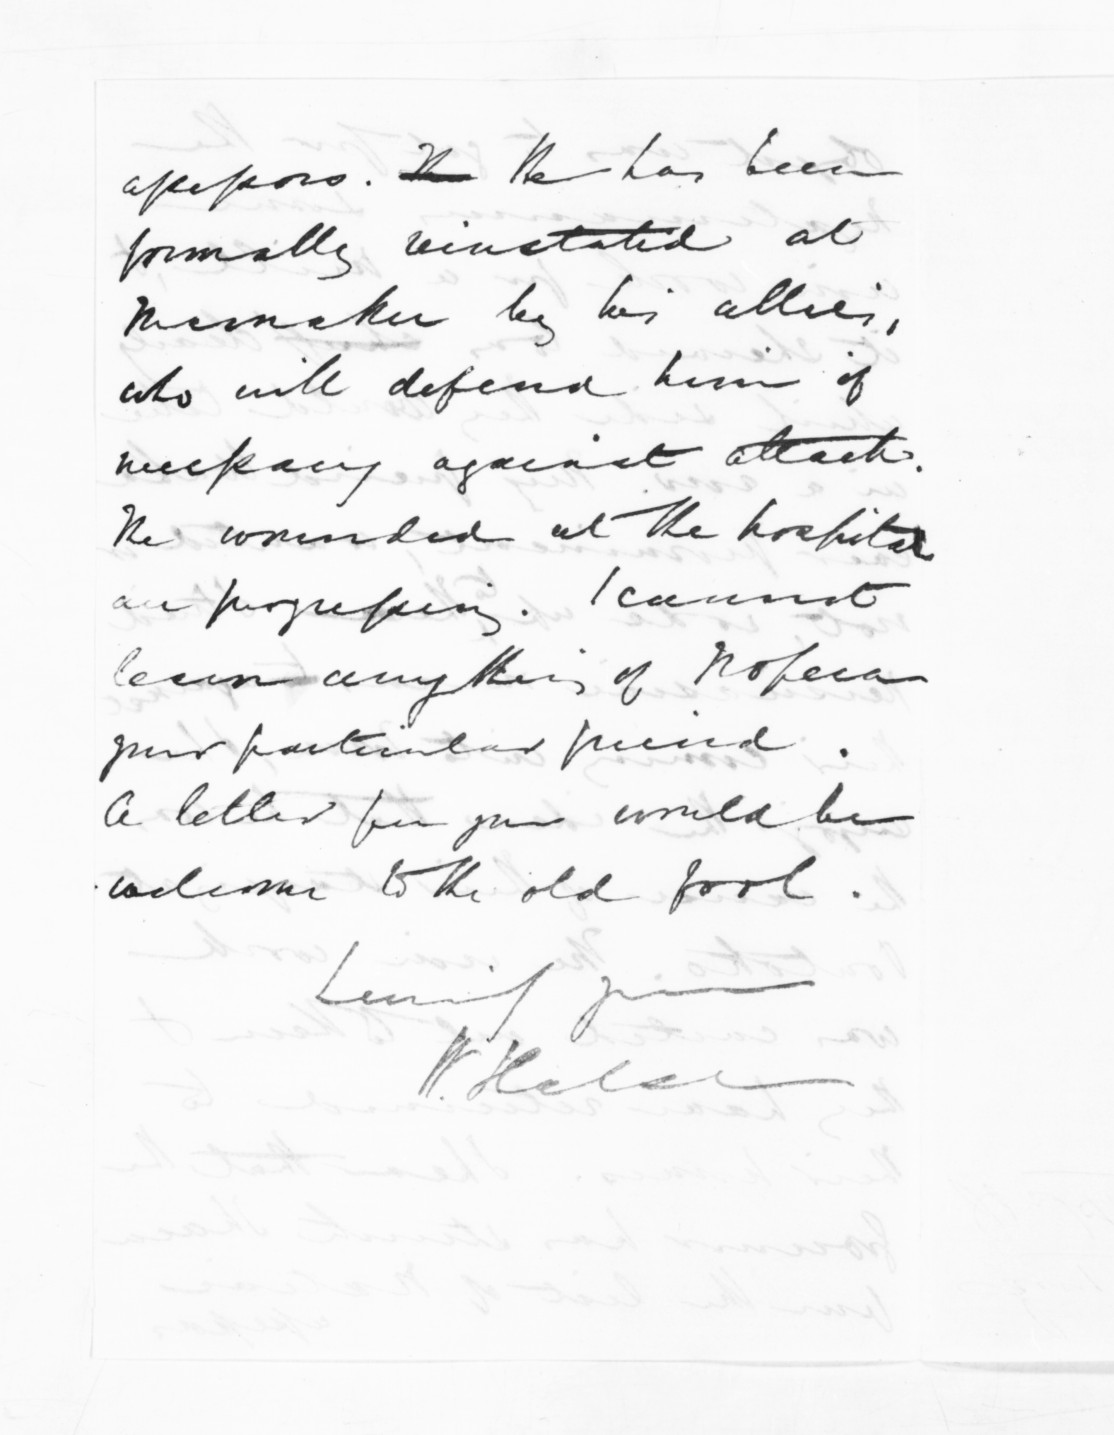 assessors. He has been
formally reinstated at
by his allies,
who will defend him if
necessary against attack.
The wounded at the hospital
are progressing. I cannot
learn anything of
your particular friend.
A letter from you would be
welcome to the old fool.
yours
W. Halse